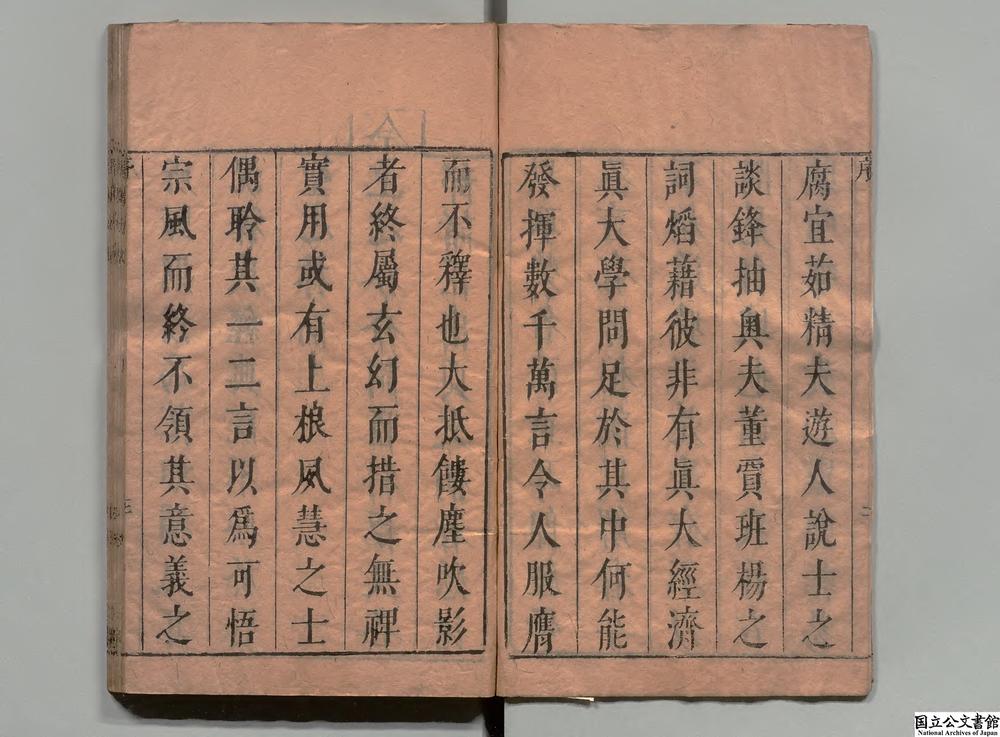 序
腐宜茹精夫遊人說士之
談鋒抽奧夫董賈班楊之
詞熖藉彼非有眞大經濟
眞大學問足於其中何能
發揮數千萬言令人服膺
而不釋也大抵饐塵吹影
者終屬玄幻而措之無裨
實用或有上根夙慧之士
偶聆其一二言以爲可悟
宗風而終不領其意義之
国立公文書館
National Archives of Japan